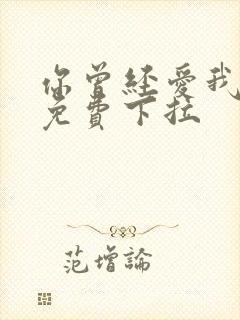 你曾経愛我
免費下拉
范增論